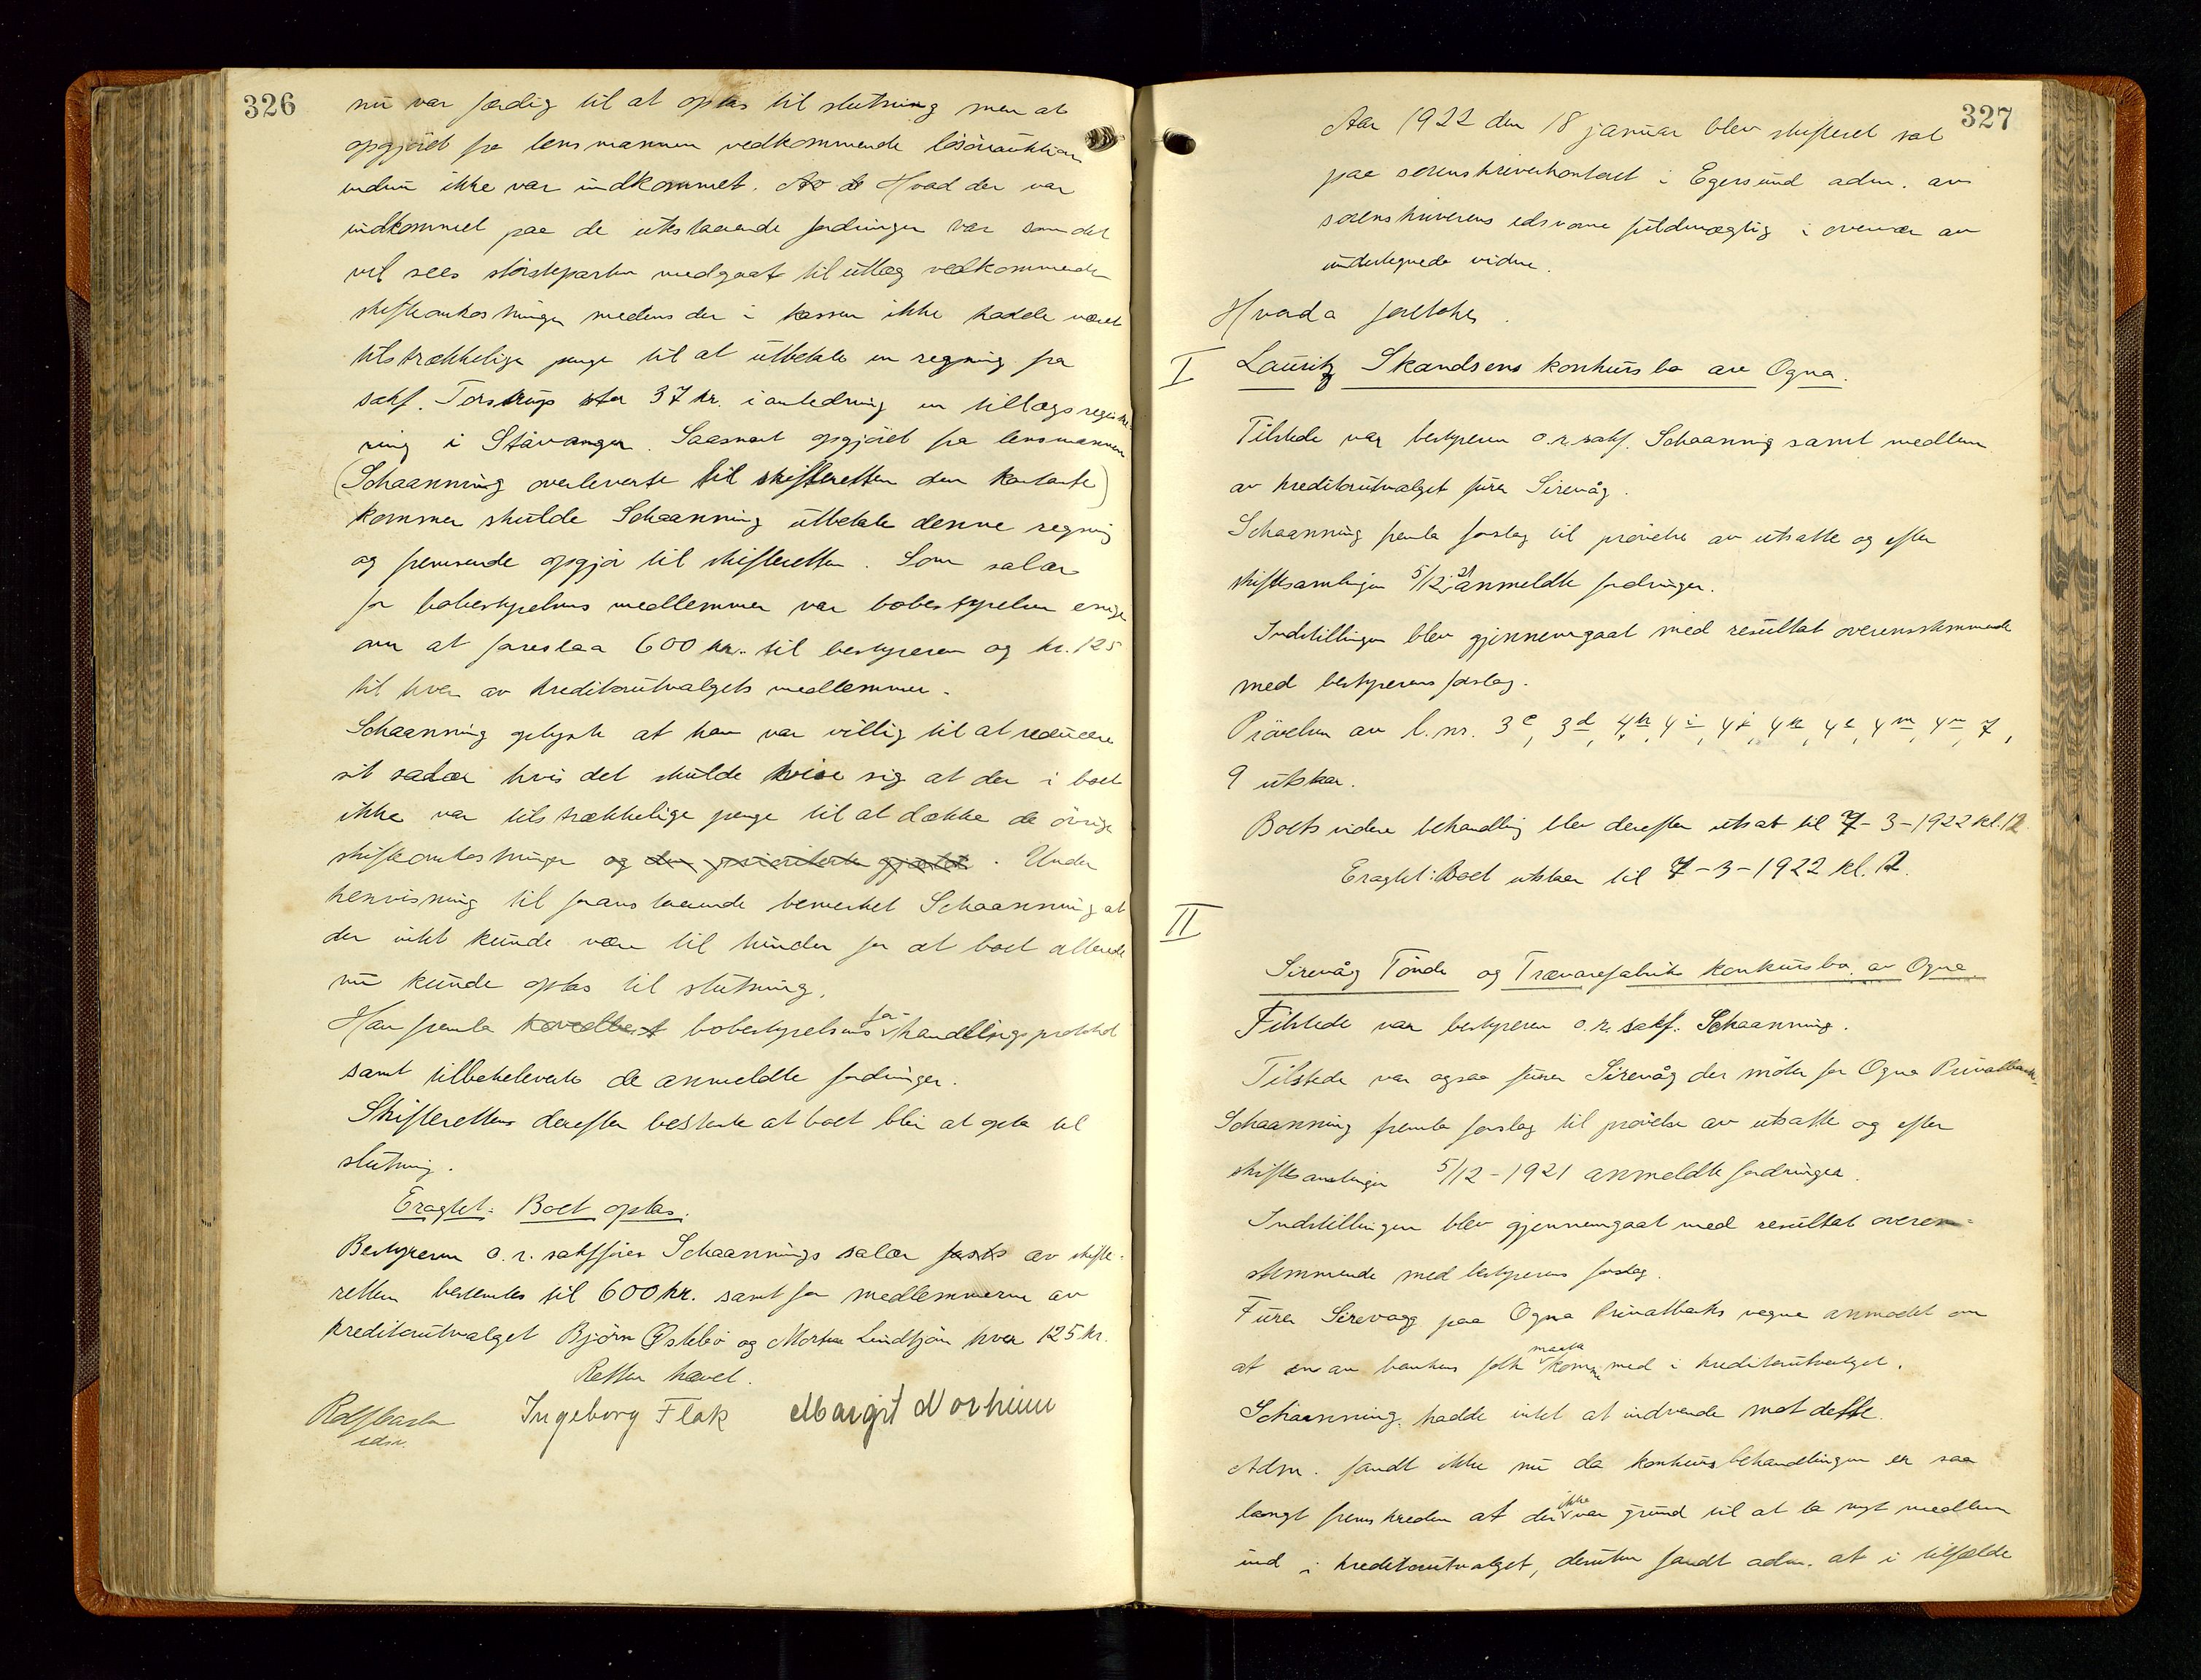 326
nu var færdig til at optas til slutning men at
opgjöret fra lensmannen vedkommende lösöreauktion
endnu ikke var indkommet. Av de Hvad der var
indkommet paa de utestaaende fordringer var som det
vil sees störsteparten medgaat til utlæg vedkommende
skifteomkostninger medens der i kassen ikke hadde været
tilstrækkelige penge til at utbetale en regning fra
sakf. Torstrup stor 37 kr. i anledning en tillægsregistre-
ring i Stavanger. Saasnart opgjöret fra lensmannen
(Schaanning overleverte til skifteretten den kontante)
kommer skulde Schaanning utbetale denne regning
og fremsende opgjör til skifteretten. Som salær
for bobestyrelsens medlemmer var bobestyrelsen enige
om at foreslaa 600 kr. til bestyreren og kr. 125
til hver av kreditorutvalgets medlemmer.
Schaanning oplyste at han var villig til at reducere
sit salær hvis det skulde vise sig at der i boet
ikke var tilstrækkelige penge til at dække de övrige
skifteomkostninger og den prioriterte gjæld. Under
henvisning til foranstaaende bemerket Schaanning at
der intet kunde være til hinder for at boet allerede
nu kunde optas til slutning.
Han fremla bobestyrelsens forhandlingsprotokol
samt tilbakeleverte de anmeldte fordringer.
Skifteretten derefter bestemte at boet blir at opta til
slutning.
Eragtet: Boet optas.
Bestyreren o.r. sakförer Schaannings salær fasts av skifte-
retten bestemtes til 600 kr. samt for medlemmerne av
kreditorutvalget Björn Østebö og Morten Lindtjön hver 125 kr.
Retten hævet.
Ingeborg Flak Margit Norheim
edsv.
327
Aar 1922 den 18 januar blev skifteret sat
paa sorenskriverkontoret i Egersund adm. av
sorenskriverens edsvorne fuldmægtig i overvær av
undertegnede vidne.
Hvorda foretokes.
I Lauritz Skandsens konkursbo av Ogna.
Tilstede var bestyreren o.r. sakf. Schaanning samt medlem
av kreditorutvalget furer Sirevåg.
Schaanning fremla forslag til prövelse av utsatte og efter
skiftesamlingen 5/12 21 anmeldte fordringer.
Indstillingen blev gjennemgaat med resultat overensstemmende
med bestyrerens forslag.
Prövelsen av l.nr. 3c, 3d, 4h, 4i, 4j, 4k, 4l, 4m, 4n, 7,
9 utstaar.
Boets videre behandling blev derefter utsat til 7-3-1922 kl. 12
Eragtet: Boet utstaar til 7-3-1922 kl. 12.
II
Sirevåg Tönde og Trævarefabriks konkursbo av Ogna
Tilstede var bestyreren o.r. sakf. Schaanning.
Tilstede var ogsaa furer Sirevåg der möter for Ogna Privatbank.
Schaanning fremla forslag til prövelse av utsatte og efter
skiftesamlingen 5/12-1921 anmeldte fordringer.
Indstillingen blev gjennemgaat med resultat overens-
stemmende med bestyrerens forslag.
Furer Sirevaag paa Ogna Privatbanks vegne anmodet om
at en av bankens folk maatte komme med i kreditorutvalget.
Schaanning hadde intet at indvende mot dette.
Adm. fandt ikke nu da konkursbehandlingen er saa
langt fremskreden at der ikke var grund til at ta nyt medlem
ind i kreditorutvalget, desuten fandt adm. at i tilfælde